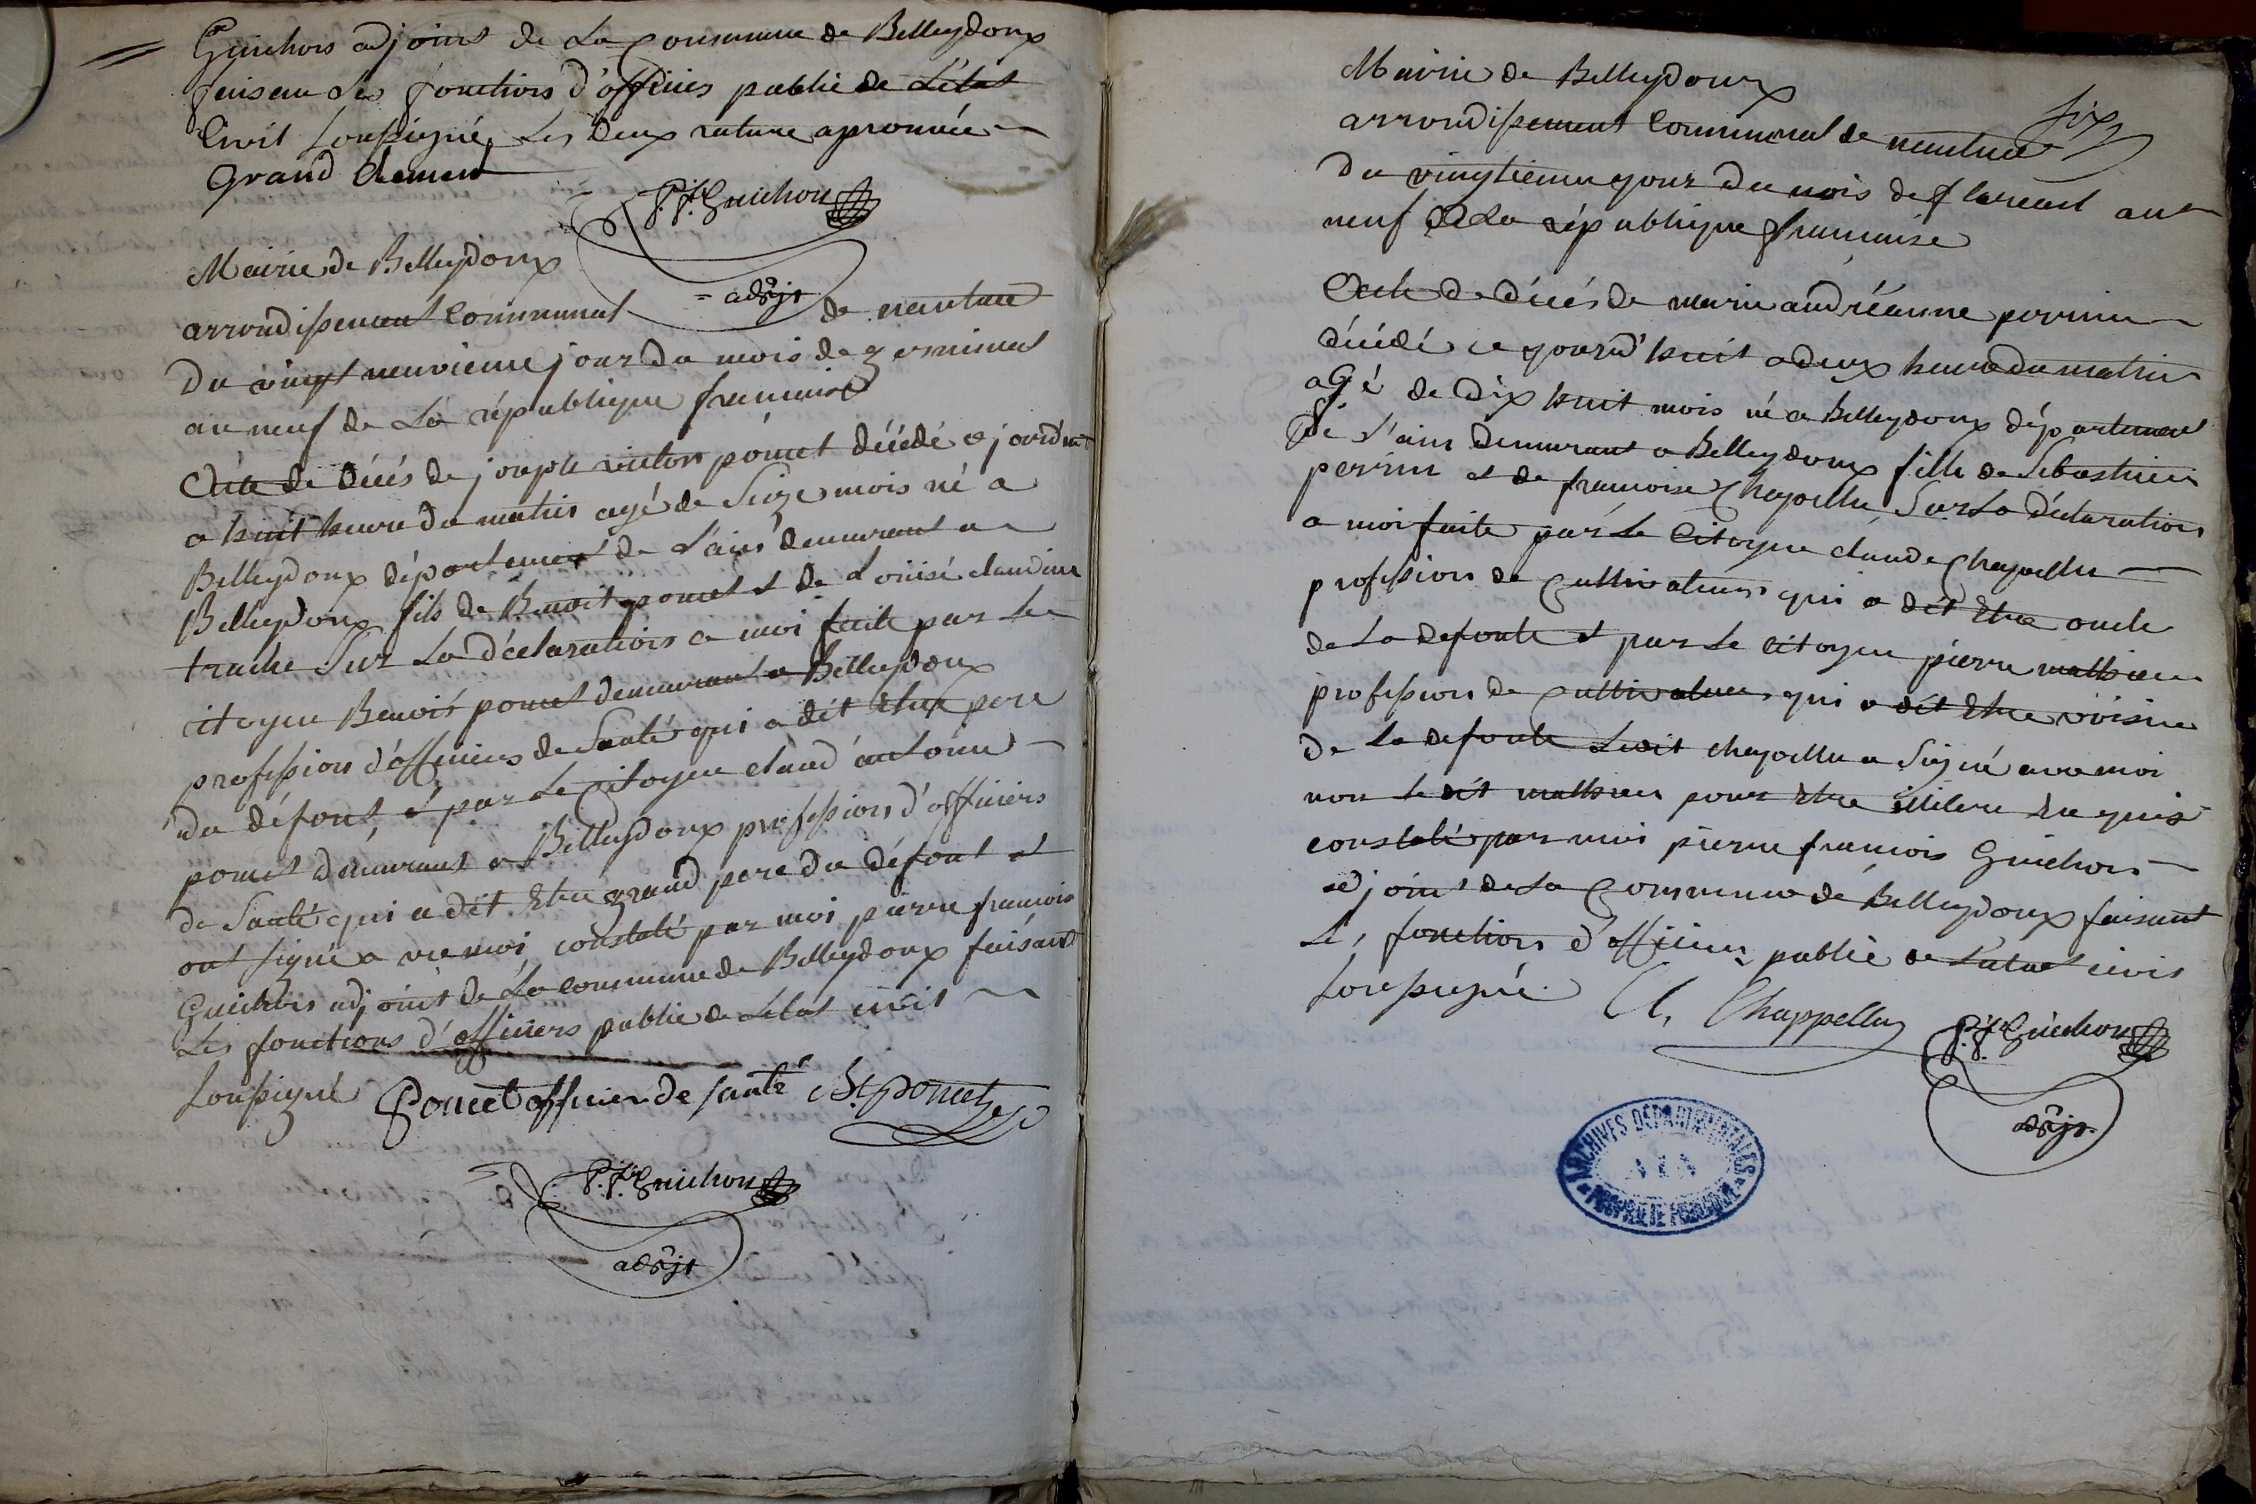 Guichon adjoint de La Commune de Belleydoux
faisan Les fonctions d'officies public de L'état
Civil Soussigné, Les deux rature aprouvée
Grand Clement
P. f. Guichon
adjt
Mairie de Belleydoux
arrondissement Communal de nantua
Du vingt neuvieme jour du mois de germinal
an neuf de La république francaise
Acte de décés de joseph victor poncet décédé ce jourd'hui
a huit heure du matin agé de Seize mois né a
Belleydoux département de L'ain demeurant a
Belleydoux fils de Benoit poncet et de Louise claudine
truche Sur La déclaration a moi faite par Le
citoyen Benoit poncet demeurant a Belleydoux
profession d'officiers de Santé qui a dit Etre pere
du défont, et par Le Citoyen claud antoine
poncet demeurant a Belleydoux profession d'officiers
de Santé qui a dit Etre grand pere du défont et
ont signé a vec moi, constaté par moi pierre francois
Guichon adjoint de La commune de Belleydoux faisant
Les fonctions d'officiers public de L'état civil
Soussigné
Poncet officier de santé Bt poncet
P. f. Guichon
adjt
Mairie de Belleydoux
six
arrondissement Communal de nantua
Du vingtieme jour du mois de floreal ant
neuf de La république francaise
Acte de décés de marie andréanne perrin
décédé ce jourd'huit a deux heure du matin
agé de dix huit mois né a Belleydoux département
de L'ain demeurant a Belleydoux fille de Sebastien
perrin et de francoise Chapellu Sur La déclaration
a moi faite par Le Citoyen claude Chapellu
profession de Cultivateur qui a dit Etre oncle
de La defonte et par Le citoyen pierre mathieu
profession de Cultivateur qui a dit Etre voisin
de La defonte Ledit chapellu a Signé avec moi
non Le dit mathieu pour Etre illiteré Enquis
constaté par moi pierre francois Guichon
adjoint de La Commune de Belleydoux faisant
Les fonction d'officier public de L'état civil
Soussigné
Cl. Chappelluz
P. f. Guichon
adjt
ARCHIVES DÉPARTEMENTALES
AIN
PROPRIÉTÉ PUBLIQUE